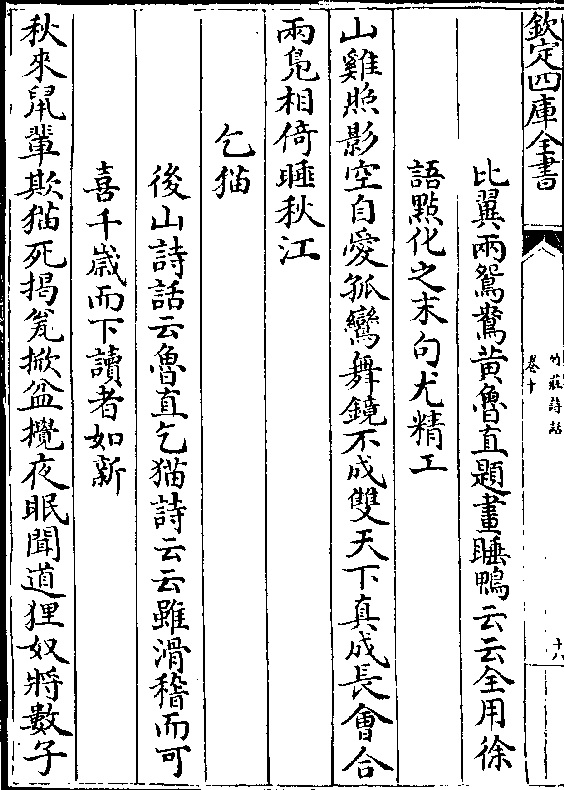 欽定四庫全書
竹莊詩話
卷十
十八
比翼兩鴛鴦黄魯直題畫睡鴨云云全用徐
語點化之末句尤精工
山雞照影空自愛孤鸞舞鏡不成雙天下真成長會合
兩鳬相倚睡秋江
乞猫
後山詩話云魯直乞猫詩云云雖滑稽而可
喜千歲而下讀者如新
秋來鼠輩欺猫死揭瓮掀盆攪夜眠聞道狸奴將數子